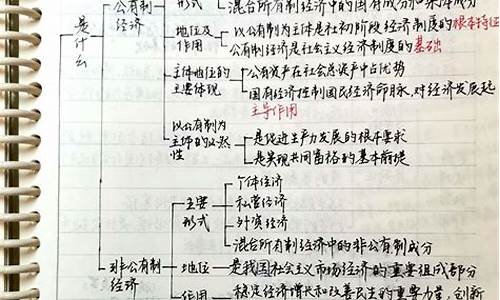 公有制 形式 混合所有制经济中的国有成分和集体成分
是什么
经济
地位及作用
公有制为主体是社初阶段经济制度的根本特征
公有制经济是社会主义经济制度的基础
主体地位的主要体现
公有资产在社会总资产中占优势
国有经济控制国民经济命脉,对经济发展起
主导作用
以公有制为主体的必然性
是促进生产力发展的根本要求
是实现共同富裕的基本前提
个体经济
主要形式
私营经济
外资经济
混合所有制经济中的非公有制成分
非公有制经济
地位 是我国社会主义市场经济的重要组成部分
作用 稳定经济增长和改善民生的重要力量,创新